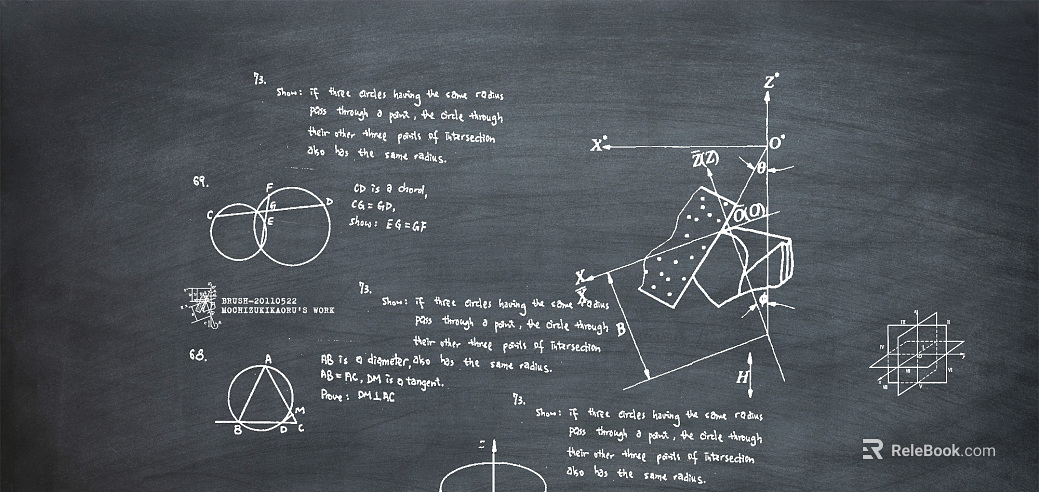 73.
Show: if three circles having the same radius
pass through a point, the circle through
their other three points of intersection
also has the same radius.
69.
F
C G D
E
CD is a chord,
CG = GD,
Show: EG = GF
Z°
X° O°
Z̄(Z) θ
Ō(O)
X
X̄
B
ϕ
H
BRUSH-20110522
MOCHIZUKIKAORU'S WORK
73.
Show: if three circles having the same radius
pass through a point, the circle through
their other three points of intersection
also has the same radius.
68.
A
M
B D C
AB is a diameter,
AB = AC, DM is a tangent.
Prove: DM⊥AC
73.
Show: if three circles having the same radius
pass through a point, the circle through
their other three points of intersection
also has the same radius.
ReleBook.com